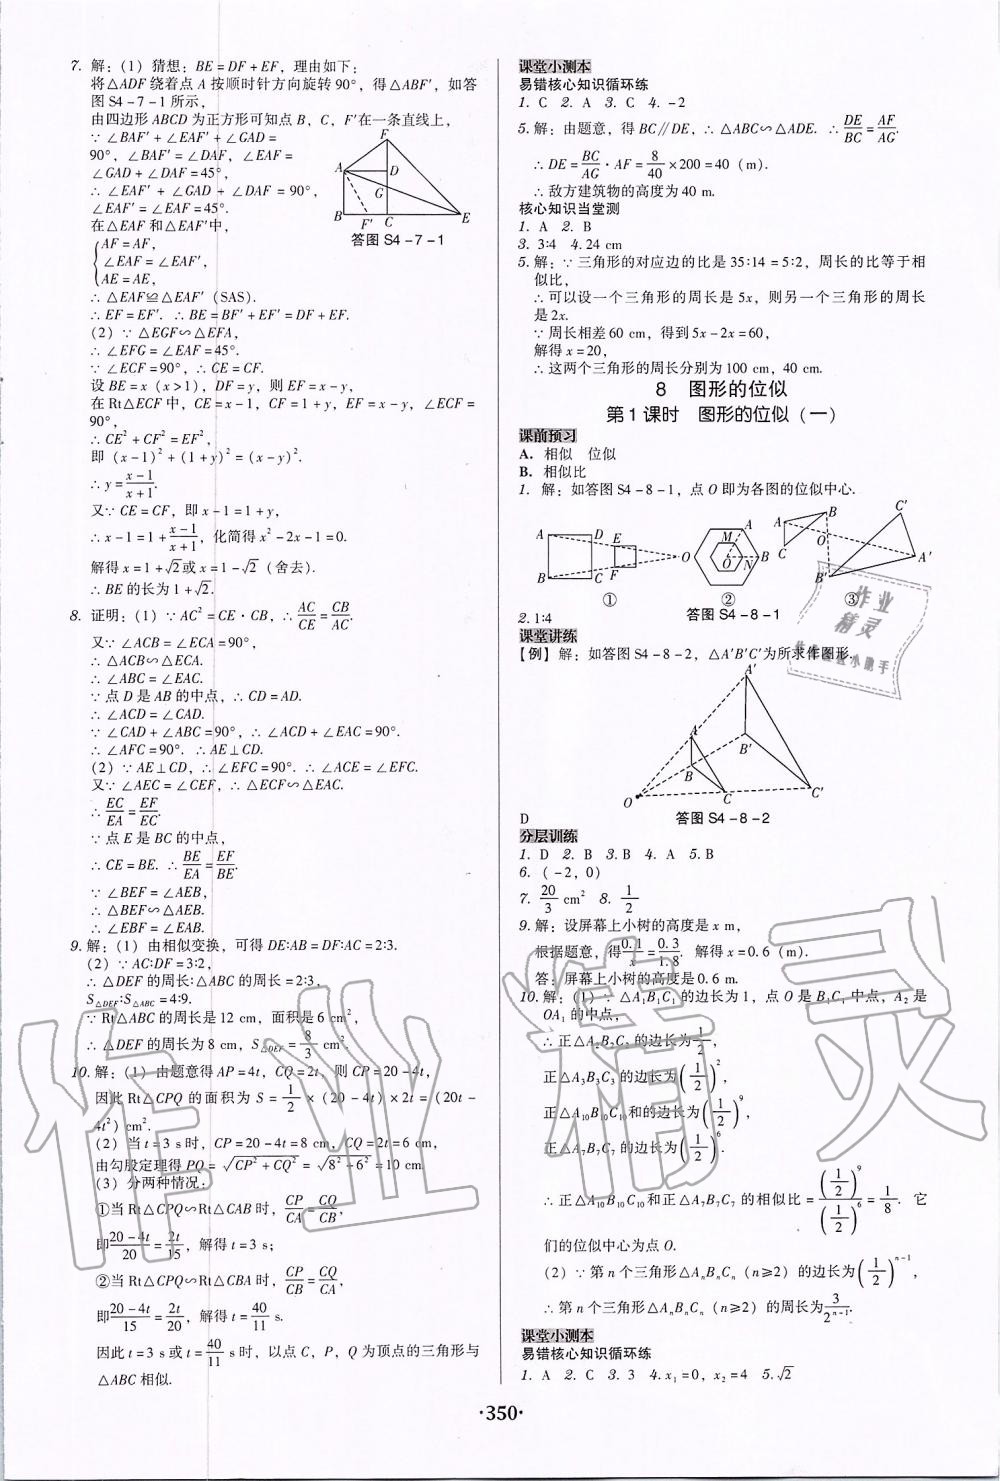 7. 解：(1) 猜想：BE=DF+EF，理由如下：
将△ADF绕着点A按顺时针方向旋转90°，得△ABF′，如答
图S4-7-1所示，
由四边形ABCD为正方形可知点B，C，F′在一条直线上，
∵∠BAF′+∠EAF′+∠GAD=
90°，∠BAF′=∠DAF，∠EAF=
∠GAD+∠DAF=45°，
∴∠EAF′+∠GAD+∠DAF=90°，
∠EAF′=∠EAF=45°.
在△EAF和△EAF′中，
AF=AF,
∠EAF=∠EAF′,
AE=AE,
答图S4-7-1
∴△EAF≌△EAF′(SAS).
∴EF=EF′. ∴BE=BF′+EF′=DF+EF.
(2) ∵△EGF∽△EFA，
∴∠EFG=∠EAF=45°.
∵∠ECF=90°，∴CE=CF.
设BE=x(x>1)，DF=y，则EF=x-y，
在Rt△ECF中，CE=x-1，CF=1+y，EF=x-y，∠ECF=
90°，
∴CE²+CF²=EF²，
即(x-1)²+(1+y)²=(x-y)².
∴y=(x-1)/(x+1).
又∵CE=CF，即x-1=1+y，
∴x-1=1+(x-1)/(x+1)，化简得x²-2x-1=0.
解得x=1+√2或x=1-√2(舍去).
∴BE的长为1+√2.
8. 证明：(1) ∵AC²=CE·CB，∴AC/CE=CB/AC.
又∵∠ACB=∠ECA=90°，
∴△ACB∽△ECA.
∴∠ABC=∠EAC.
∵点D是AB的中点，∴CD=AD.
∴∠ACD=∠CAD.
∵∠CAD+∠ABC=90°，∴∠ACD+∠EAC=90°.
∴∠AFC=90°. ∴AE⊥CD.
(2) ∵AE⊥CD，∴∠EFC=90°. ∴∠ACE=∠EFC.
又∵∠AEC=∠CEF，∴△ECF∽△EAC.
∴EC/EA=EF/EC.
∵点E是BC的中点，
∴CE=BE. ∴BE/EA=EF/BE.
∵∠BEF=∠AEB，
∴△BEF∽△AEB.
∴∠EBF=∠EAB.
9. 解：(1) 由相似变换，可得DE:AB=DF:AC=2:3.
(2) ∵AC:DF=3:2，
∴△DEF的周长:△ABC的周长=2:3，
S△DEF:S△ABC=4:9.
∵Rt△ABC的周长是12 cm，面积是6 cm²，
∴△DEF的周长为8 cm，S△DEF=8/3 cm².
10. 解：(1) 由题意得AP=4t，CQ=2t，则CP=20-4t，
因此Rt△CPQ的面积为S=1/2×(20-4t)×2t=(20t-
4t²)cm².
(2) 当t=3 s时，CP=20-4t=8 cm，CQ=2t=6 cm，
由勾股定理得PQ=√(CP²+CQ²)=√(8²+6²)=10 cm.
(3) 分两种情况：
①当Rt△CPQ∽Rt△CAB时，CP/CA=CQ/CB，
即(20-4t)/20=2t/15，解得t=3 s；
②当Rt△CPQ∽Rt△CBA时，CP/CB=CQ/CA，
即(20-4t)/15=2t/20，解得t=40/11 s.
因此t=3 s或t=40/11 s时，以点C，P，Q为顶点的三角形与
△ABC相似.
课堂小测本
易错核心知识循环练
1. C 2. A 3. C 4. -2
5. 解：由题意，得BC∥DE，∴△ABC∽△ADE. ∴DE/BC=AF/AG.
∴DE=BC/AG·AF=8/40×200=40(m).
∴敌方建筑物的高度为40 m.
核心知识当堂测
1. A 2. B
3. 3:4 4. 24 cm
5. 解：∵三角形的对应边的比是35:14=5:2，周长的比等于相
似比，
∴可以设一个三角形的周长是5x，则另一个三角形的周长
是2x.
∵周长相差60 cm，得到5x-2x=60，
解得x=20，
∴这两个三角形的周长分别为100 cm，40 cm.
8 图形的位似
第1课时 图形的位似(一)
课前预习
A. 相似 位似
B. 相似比
1. 解：如答图S4-8-1，点O即为各图的位似中心.
① ② ③
答图S4-8-1
2. 1:4
课堂讲练
【例】解：如答图S4-8-2，△A′B′C′为所求作图形.
答图S4-8-2
D
分层训练
1. D 2. B 3. B 4. A 5. B
6. (-2，0)
7. 20/3 cm² 8. 1/2
9. 解：设屏幕上小树的高度是x m，
根据题意，得0.1/x=0.3/1.8. 解得x=0.6(m).
答：屏幕上小树的高度是0.6 m.
10. 解：(1) ∵△A₁B₁C₁的边长为1，点O是B₁C₁中点，A₂是
OA₁的中点，
∴正△A₂B₂C₂的边长为1/2，
正△A₃B₃C₃的边长为(1/2)²，
正△A₁₀B₁₀C₁₀和的边长为(1/2)⁹，
正△A₇B₇C₇的边长为(1/2)⁶，
∴正△A₁₀B₁₀C₁₀和正△A₇B₇C₇的相似比=(1/2)⁹/(1/2)⁶=1/8. 它
们的位似中心为点O.
(2) ∵第n个三角形△AₙBₙCₙ(n≥2)的边长为(1/2)ⁿ⁻¹，
∴第n个三角形△AₙBₙCₙ(n≥2)的周长为3/2ⁿ⁻¹.
课堂小测本
易错核心知识循环练
1. A 2. C 3. 3 4. x₁=0，x₂=4 5. √2
·350·
作业精灵